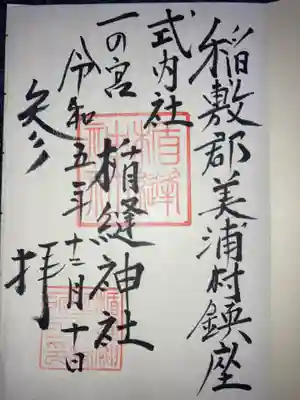 稲敷郡美浦村鎮座
式内社
一の宮 楯縫神社
令和五年十二月十日
参拝
楯縫神社